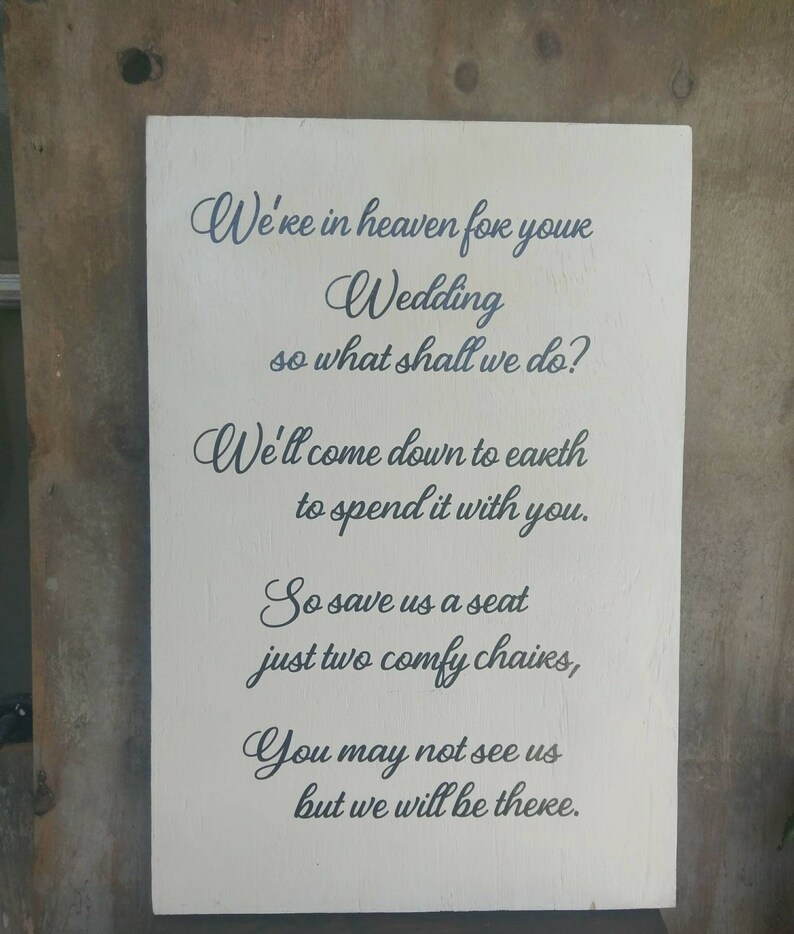 We're in heaven for your
Wedding
so what shall we do?
We'll come down to earth
to spend it with you.
So save us a seat
just two comfy chairs,
You may not see us
but we will be there.